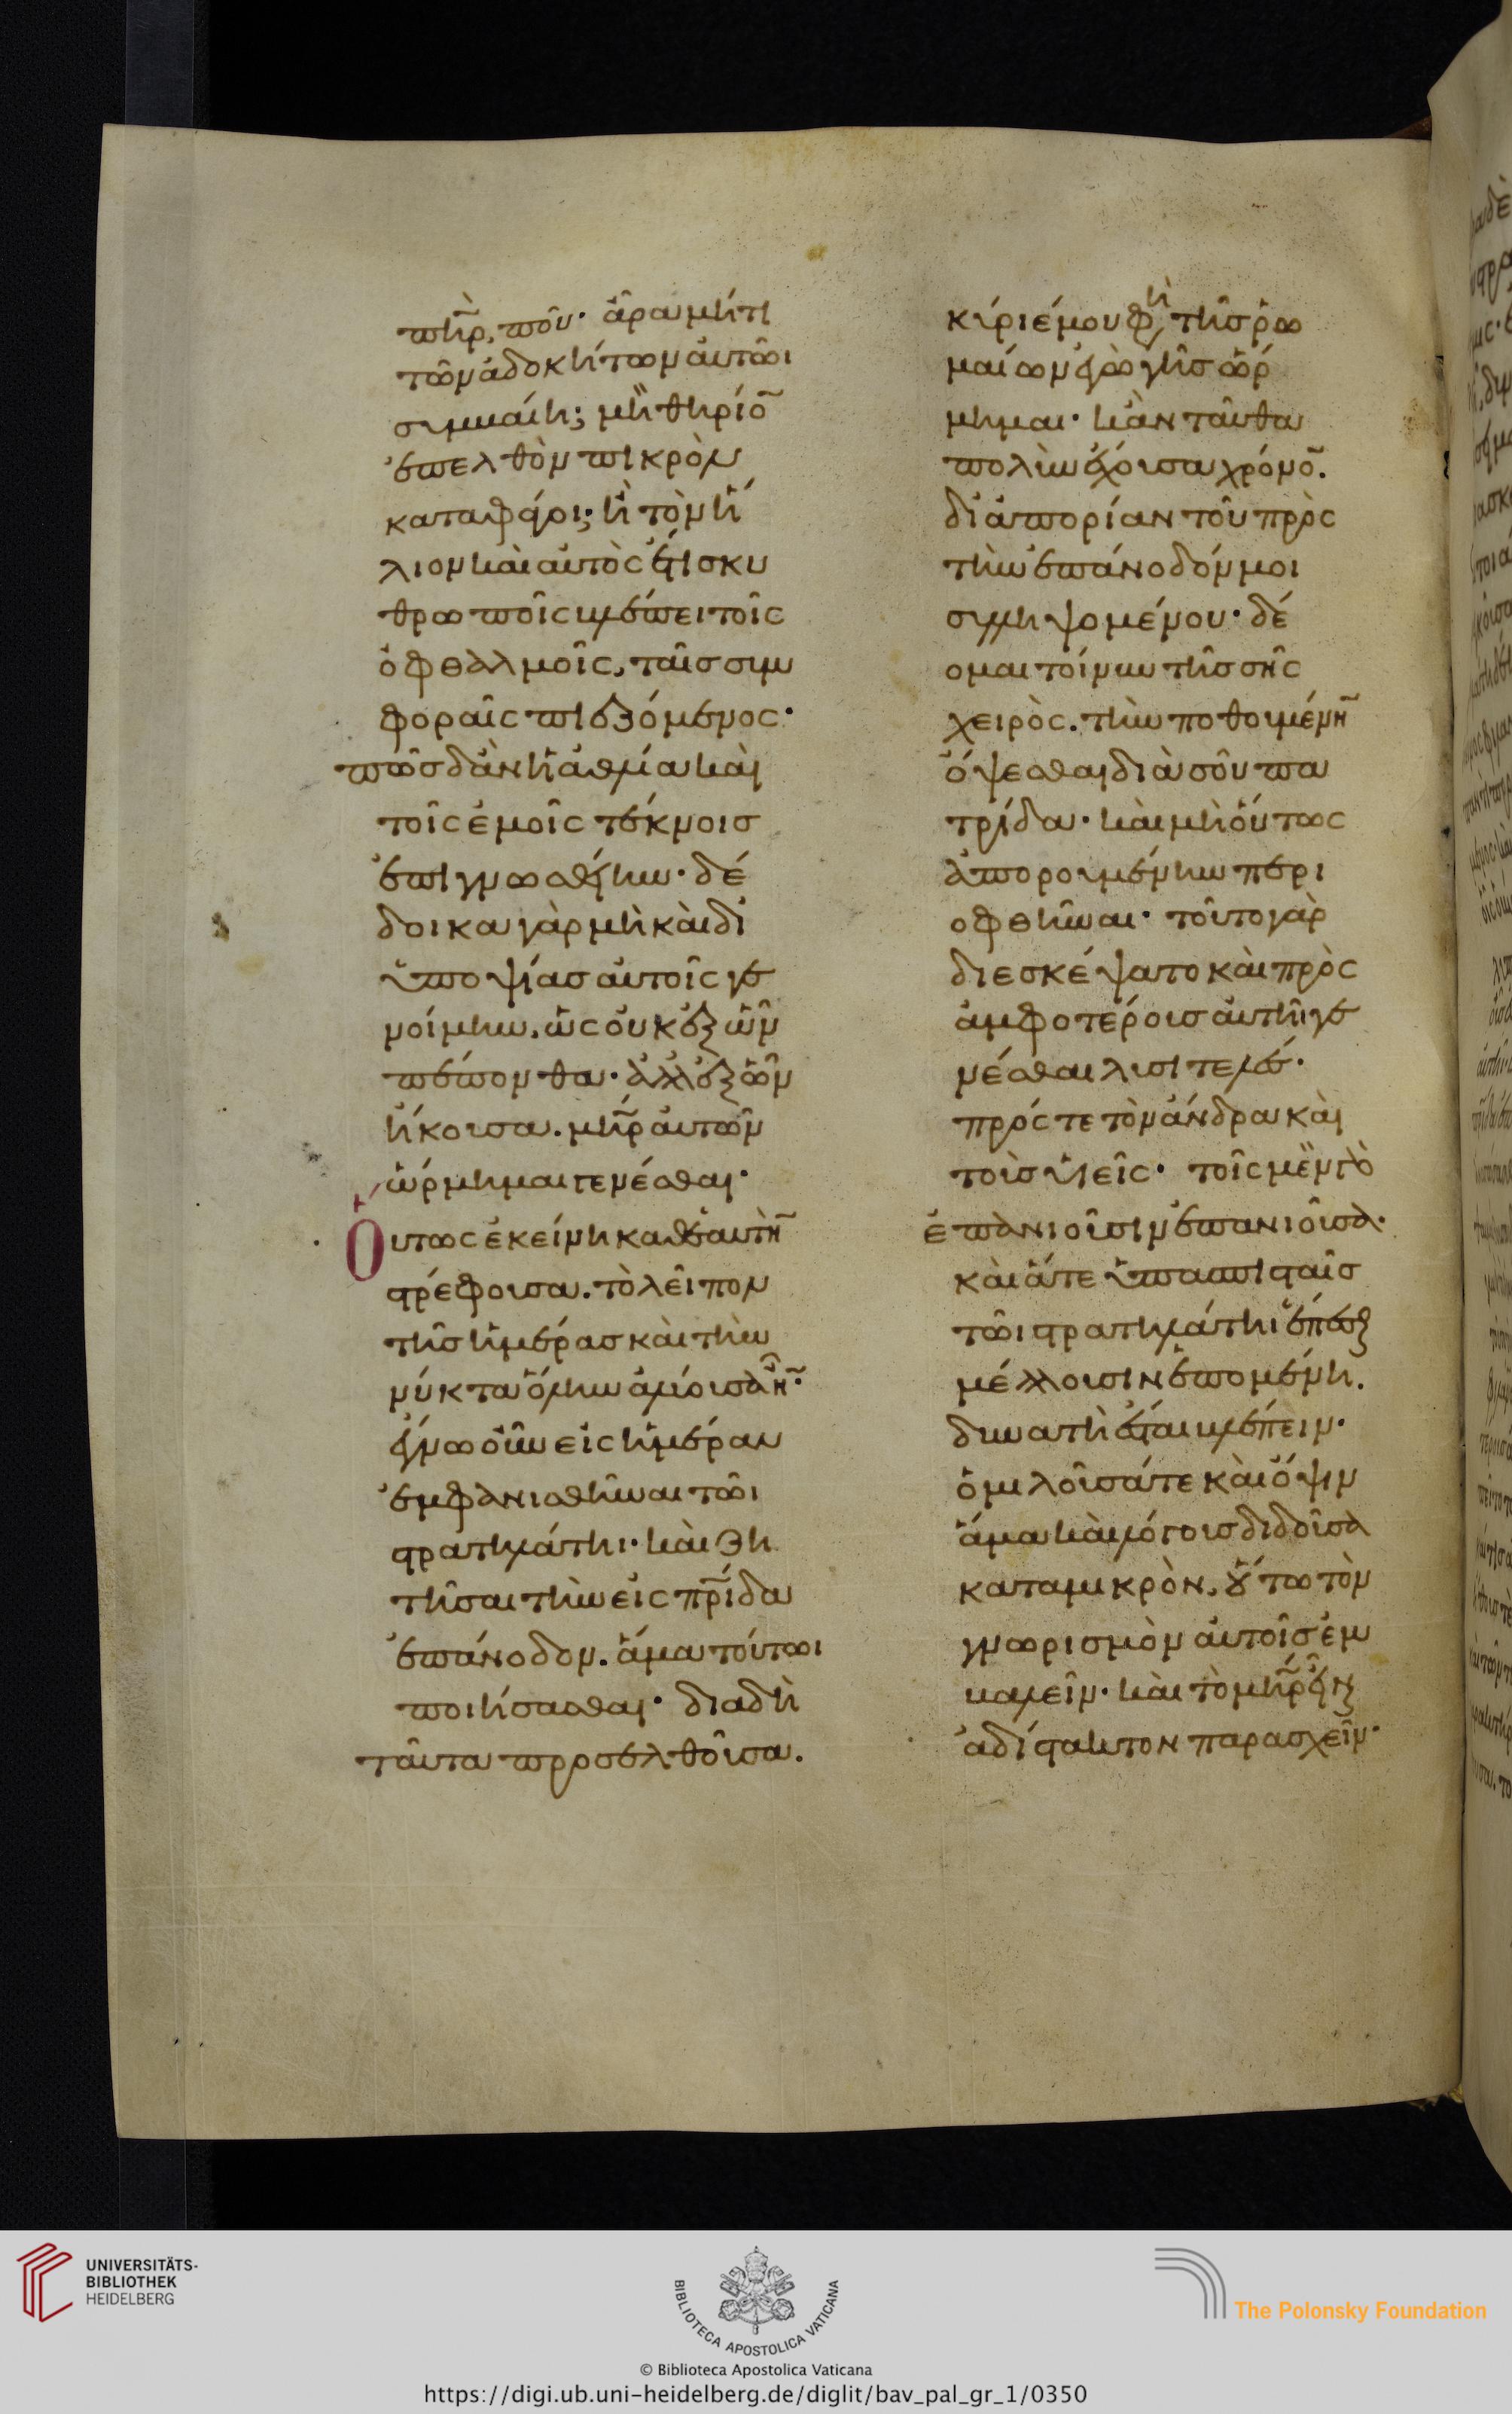 πηρ̀, ποῦ· ἄρα μήτι
τῶν ἀδοκήτων αὐτῶι
συμβαίη; μὴ θηρίο̄
ἐπελθὸν πικρὸν
καταφάγοι; ἢ τὸν ἥ
λιον καὶ αὐτὸς ἔτι σκυ
θρωποῖς βλέπει τοῖς
ὀφθαλμοῖς, ταῖς συμ
φοραῖς πιεζόμενος·
πῶς δ' ἂν ἡ ἀθλία καὶ
τοῖς ἐμοῖς τέκνοις
ἐπιγνωσθείην· δέ
δοικα γὰρ μὴ καὶ δι'
ὑποψίας αὐτοῖς γε
νοίμην. ὡς οὐκ ἐξ ὧν
πέπονθα· ἀλλ' ἐξ ὧν
ἤκουσα. μη̄ρ αὐτῶν
ὥρμημαι γενέσθαι·
Οὕτως ἐκείνη καθ' ἑαυτὴ̄
στρέφουσα. τὸ λεῖπον
τῆς ἡμέρας καὶ τὴν
νύκτα ὅλην ἀνύουσα ἦν·
ἔγνω οὖν εἰς ἡμέραν
ἐμφανισθῆναι τῶι
στρατηλάτηι· καὶ ζη
τῆσαι τὴν εἰς πρ̄ίδα
ἐπάνοδον. ἅμα τούτωι
ποιήσασθαι· διαδὴ
ταῦτα προσελθοῦσα.
κύριέ μου φη, τῆς ῥω
μαίων ἐγὼ γῆς ὥρ
μημαι· κἀνταῦθα
πολὺν ἔχουσα χρόνο̄.
δι' ἀπορίαν τοῦ πρὸς
τὴν ἐπάνοδόν μοι
συλληψομένου· δέ
ομαι τοίνυν τῆς σῆς
χειρὸς. τὴν ποθουμένη̄
ὄψεσθαι διὰ σοῦ πα
τρίδα· καὶ μὴ οὕτως
ἀπορουμένην περι
οφθῆναι· τοῦτο γὰρ
διεσκέψατο καὶ πρὸς
ἀμφοτέροις αὐτῆι γε
νέσθαι λυσιτελές·
πρός τε τὸν ἄνδρα καὶ
τοὺς υἱεῖς· τοῖς μὲν γὰρ
ἐπανιοῦσιν ἐπανιοῦσα·
καὶ ἅτε ὑπασπισταῖς
τῶι στρατηλάτηι ἕπεσθαι
μέλλουσιν ἑπομένη.
δυνατὴ ἔσται βλέπειν·
ὁμιλοῦσά τε καὶ ὄψιν
ἅμα καὶ λόγους διδοῦσα
καταμικρὸν, οὕτω τὸν
γνωρισμὸν αὐτοῖς ἐμ
βαλεῖν· καὶ τὸ μη̄ρ εἶναι
ἀδίστακτον παρασχεῖν·
UNIVERSITÄTS-
BIBLIOTHEK
HEIDELBERG
BIBLIOTECA APOSTOLICA VATICANA
The Polonsky Foundation
© Biblioteca Apostolica Vaticana
https://digi.ub.uni-heidelberg.de/diglit/bav_pal_gr_1/0350